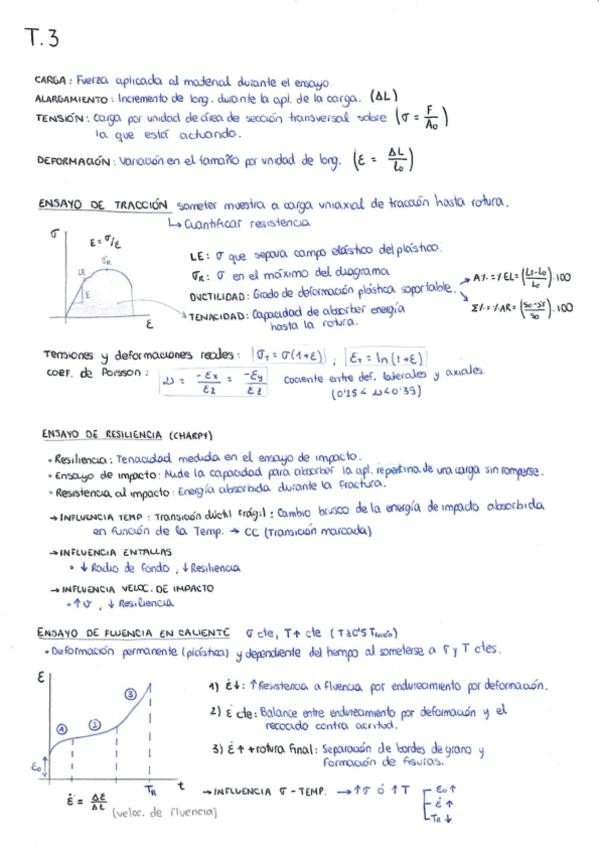 T.3
CARGA: Fuerza aplicada al material durante el ensayo.
ALARGAMIENTO: Incremento de long. durante la apl. de la carga. (ΔL)
TENSIÓN: Carga por unidad de área de sección transversal sobre (σ = F/A₀)
la que está actuando.
DEFORMACIÓN: Variación en el tamaño por unidad de long. (ε = ΔL/L₀)
ENSAYO DE TRACCIÓN someter muestra a carga uniaxial de tracción hasta rotura.
↳ Cuantificar resistencia
σ
E = σ/ε
σR
LE
E
ε
LE: σ que separa campo elástico del plástico.
σR: σ en el máximo del diagrama
DUCTILIDAD: Grado de deformación plástica soportable.
→ A% = % EL = (Ls-L₀/L₀) · 100
→ Σ% = % AR = (S₀-Sf/S₀) · 100
TENACIDAD: Capacidad de absorber energía
hasta la rotura.
Tensiones y deformaciones reales: σT = σ(1+ε) , εT = ln(1+ε)
COEF. de Poisson: υ = -εx/εz = -εy/εz cociente entre def. laterales y axiales.
(0'25 < υ < 0'35)
ENSAYO DE RESILIENCIA (CHARPY)
• Resiliencia: Tenacidad medida en el ensayo de impacto.
• Ensayo de impacto: Mide la capacidad para absorber la apl. repentina de una carga sin romperse.
• Resistencia al impacto: Energía absorbida durante la fractura.
→ INFLUENCIA TEMP: Transición dúctil frágil: Cambio brusco de la energía de impacto absorbida
en función de la Temp. → CC (Transición marcada)
→ INFLUENCIA ENTALLAS
• ↓ Radio de fondo, ↓ Resiliencia
→ INFLUENCIA VELOC. DE IMPACTO
• ↑ v, ↓ Resiliencia
ENSAYO DE FLUENCIA EN CALIENTE σ cte, T↑ cte
• Deformación permanente (plástica) y dependiente del tiempo al someterse a σ y T ctes.
ε
① ② ③
ε₀
TR
t
ε̇ = Δε/Δt (veloc. de fluencia)
1) ε̇↓: ↑ Resistencia a fluencia por endurecimiento por deformación.
2) ε̇ cte: Balance entre endurecimiento por deformación y el
recocido contra acritud.
3) ε̇↑ + rotura final: Separación de bordes de grano y
formación de fisuras.
→ INFLUENCIA σ - TEMP. → ↑σ ó ↑T
ε₀ ↑
ε̇ ↑
TR ↓